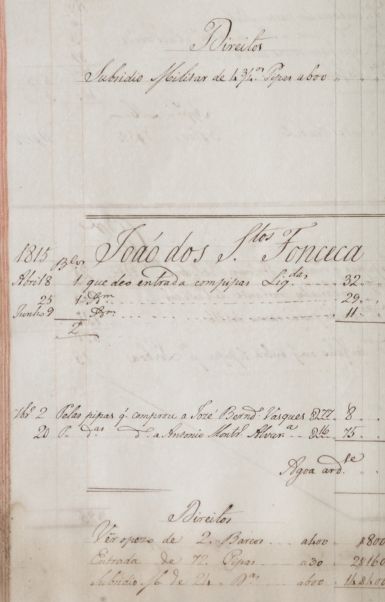 Direitos
Subsidio Militar de 43/4.ᵒˢ Pipas a 600
1815
Bl.ᵒˢ João dos S.ᵗᵒˢ Fonceca
Abril 8 1 que deo entrada com pipas Liq.ᵈᵃˢ 32
25 1 D.ᵐ 29
Junho 9 D.ᵐ 11
2
2 Pelas pipas q. comprou a Joze Bern.ᵈ Vasques 8
20 P. d.ᵃˢ d.ᵃ Antonio 75
Agoa ard.ᵗᵉ
Direitos
Ver o pezo de 2. Barcos a 400 $800
Entrada de 72. Pipas a 30 2$160
Subsidio de 24. D.ᵃˢ a 600 14$400